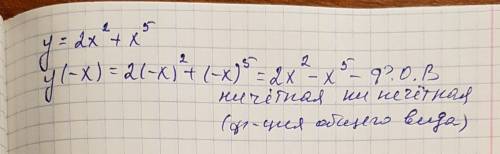 y = 2x² + x⁵
y(-x) = 2(-x)² + (-x)⁵ = 2x² - x⁵ - Ф.О.В
ни чётная ни нечётная
(ф-ция общего вида)